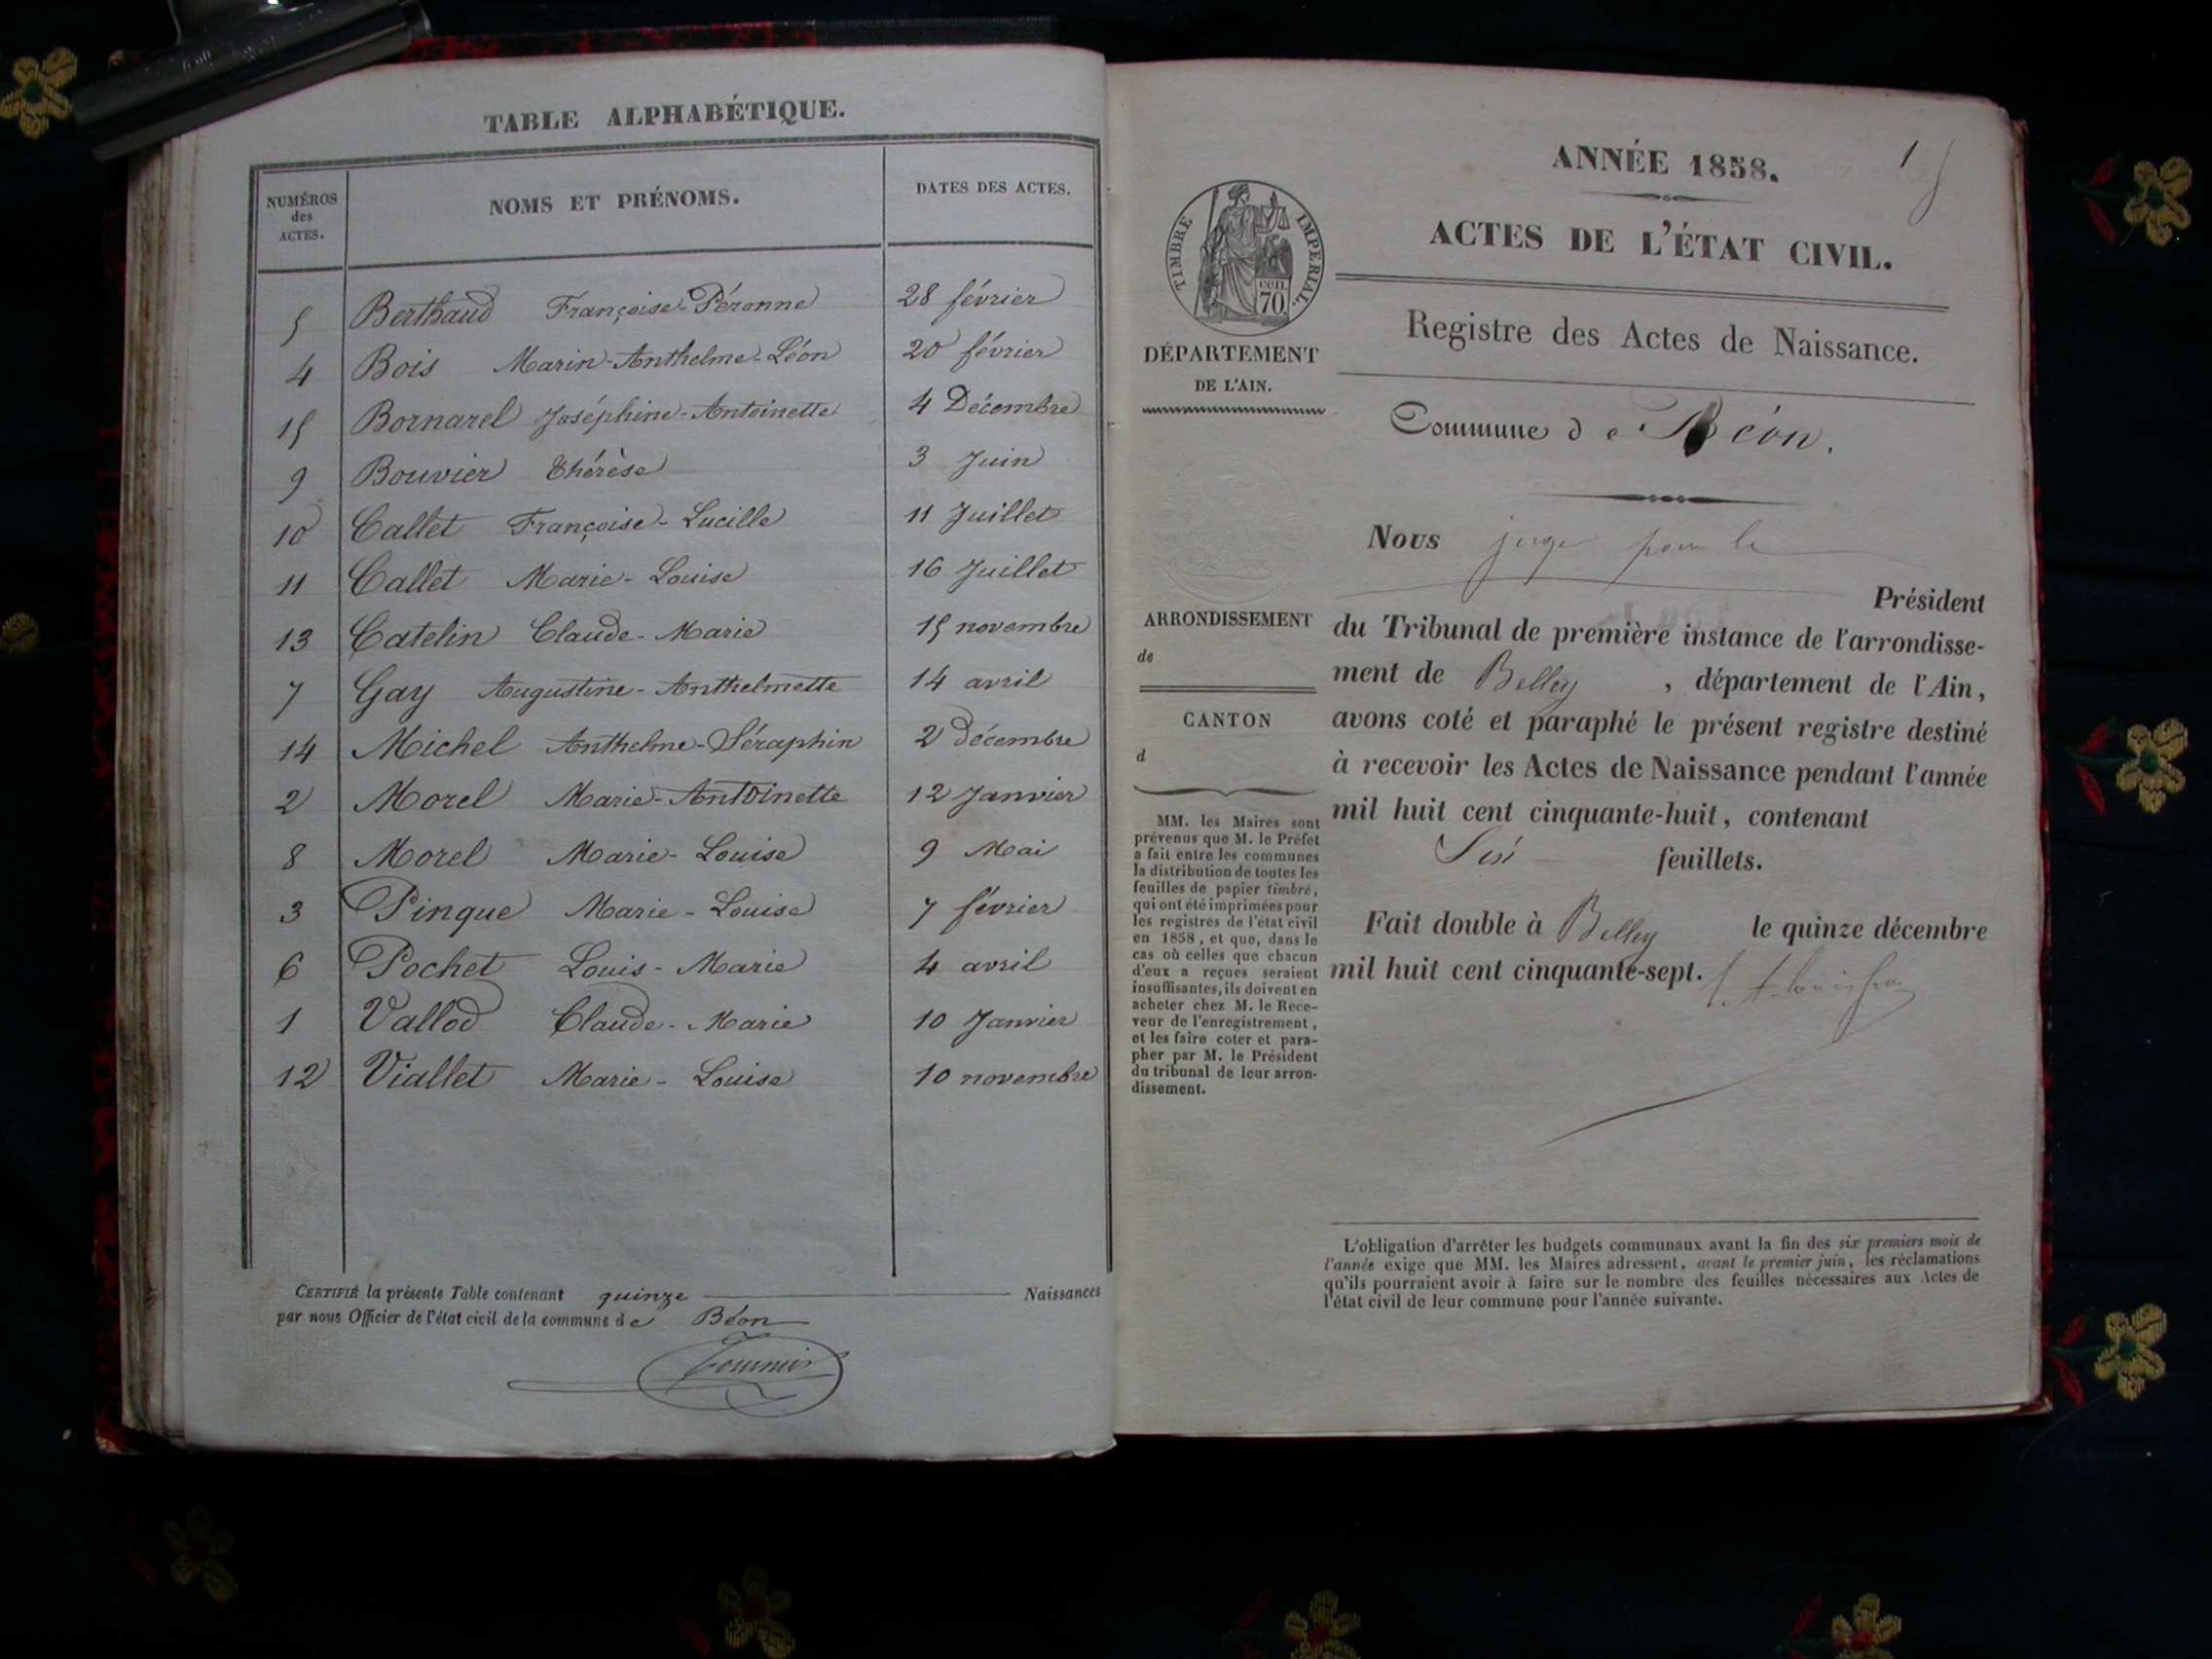 TABLE ALPHABÉTIQUE.
NUMÉROS
des
ACTES.
NOMS ET PRÉNOMS.
DATES DES ACTES.
5 Berthaud Françoise-Péronne 28 février
4 Bois Marin-Anthelme-Léon 20 février
15 Bornarel Joséphine-Antoinette 4 Décembre
9 Bouvier Thérèse 3 Juin
10 Callet Françoise-Lucille 11 Juillet
11 Callet Marie-Louise 16 Juillet
13 Catelin Claude-Marie 15 novembre
7 Gay Augustine-Anthelmette 14 avril
14 Michel Anthelme-Séraphin 2 Décembre
2 Morel Marie-Antoinette 12 Janvier
8 Morel Marie-Louise 9 Mai
3 Pingue Marie-Louise 7 février
6 Pochet Louis-Marie 4 avril
1 Vallod Claude-Marie 10 Janvier
12 Viallet Marie-Louise 10 novembre
CERTIFIÉ la présente Table contenant quinze Naissances
par nous Officier de l'état civil de la commune de Béon
1
ANNÉE 1858.
ACTES DE L'ÉTAT CIVIL.
Registre des Actes de Naissance.
Commune de Béon.
TIMBRE IMPERIAL.
CEN.
70
DÉPARTEMENT
DE L'AIN.
ARRONDISSEMENT
de
CANTON
d
MM. les Maires sont
prévenus que M. le Préfet
a fait entre les communes
la distribution de toutes les
feuilles de papier timbré,
qui ont été imprimées pour
les registres de l'état civil
en 1858, et que, dans le
cas où celles que chacun
d'eux a reçues seraient
insuffisantes, ils doivent en
acheter chez M. le Rece-
veur de l'enregistrement,
et les faire coter et para-
pher par M. le Président
du tribunal de leur arron-
dissement.
Nous juge pour le
Président
du Tribunal de première instance de l'arrondisse-
ment de Belley, département de l'Ain,
avons coté et paraphé le présent registre destiné
à recevoir les Actes de Naissance pendant l'année
mil huit cent cinquante-huit, contenant
Six feuillets.
Fait double à Belley le quinze décembre
mil huit cent cinquante-sept.
L'obligation d'arrêter les budgets communaux avant la fin des six premiers mois de
l'année exige que MM. les Maires adressent, avant le premier juin, les réclamations
qu'ils pourraient avoir à faire sur le nombre des feuilles nécessaires aux Actes de
l'état civil de leur commune pour l'année suivante.